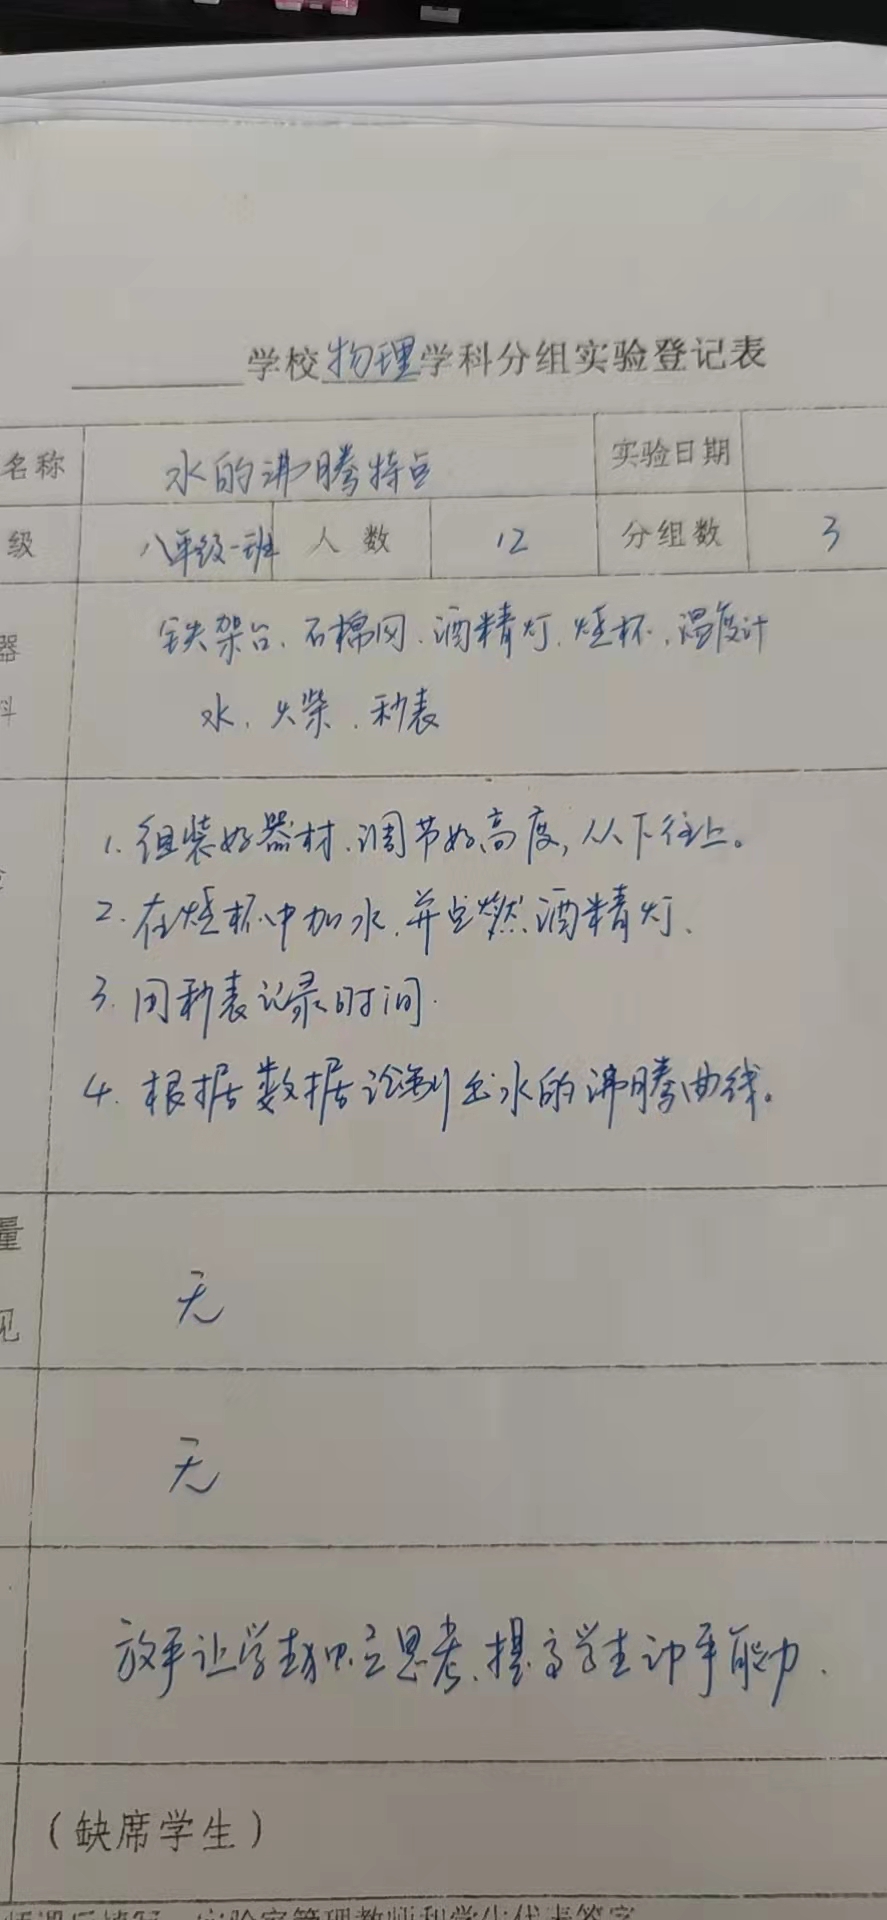 学校物理学科分组实验登记表
名称 水的沸腾特点 实验日期
级 八年级一班 人数 12 分组数 3
器 铁架台、石棉网、酒精灯、烧杯、温度计
料 水、火柴、秒表
1. 组装好器材、调节好高度，从下往上。
2. 在烧杯中加水，并点燃酒精灯、
3. 用秒表记录时间.
4. 根据数据绘制出水的沸腾曲线。
量
无
见
无
放手让学生独立思考、提高学生动手能力.
（缺席学生）
实验室管理教师和学生代表签字